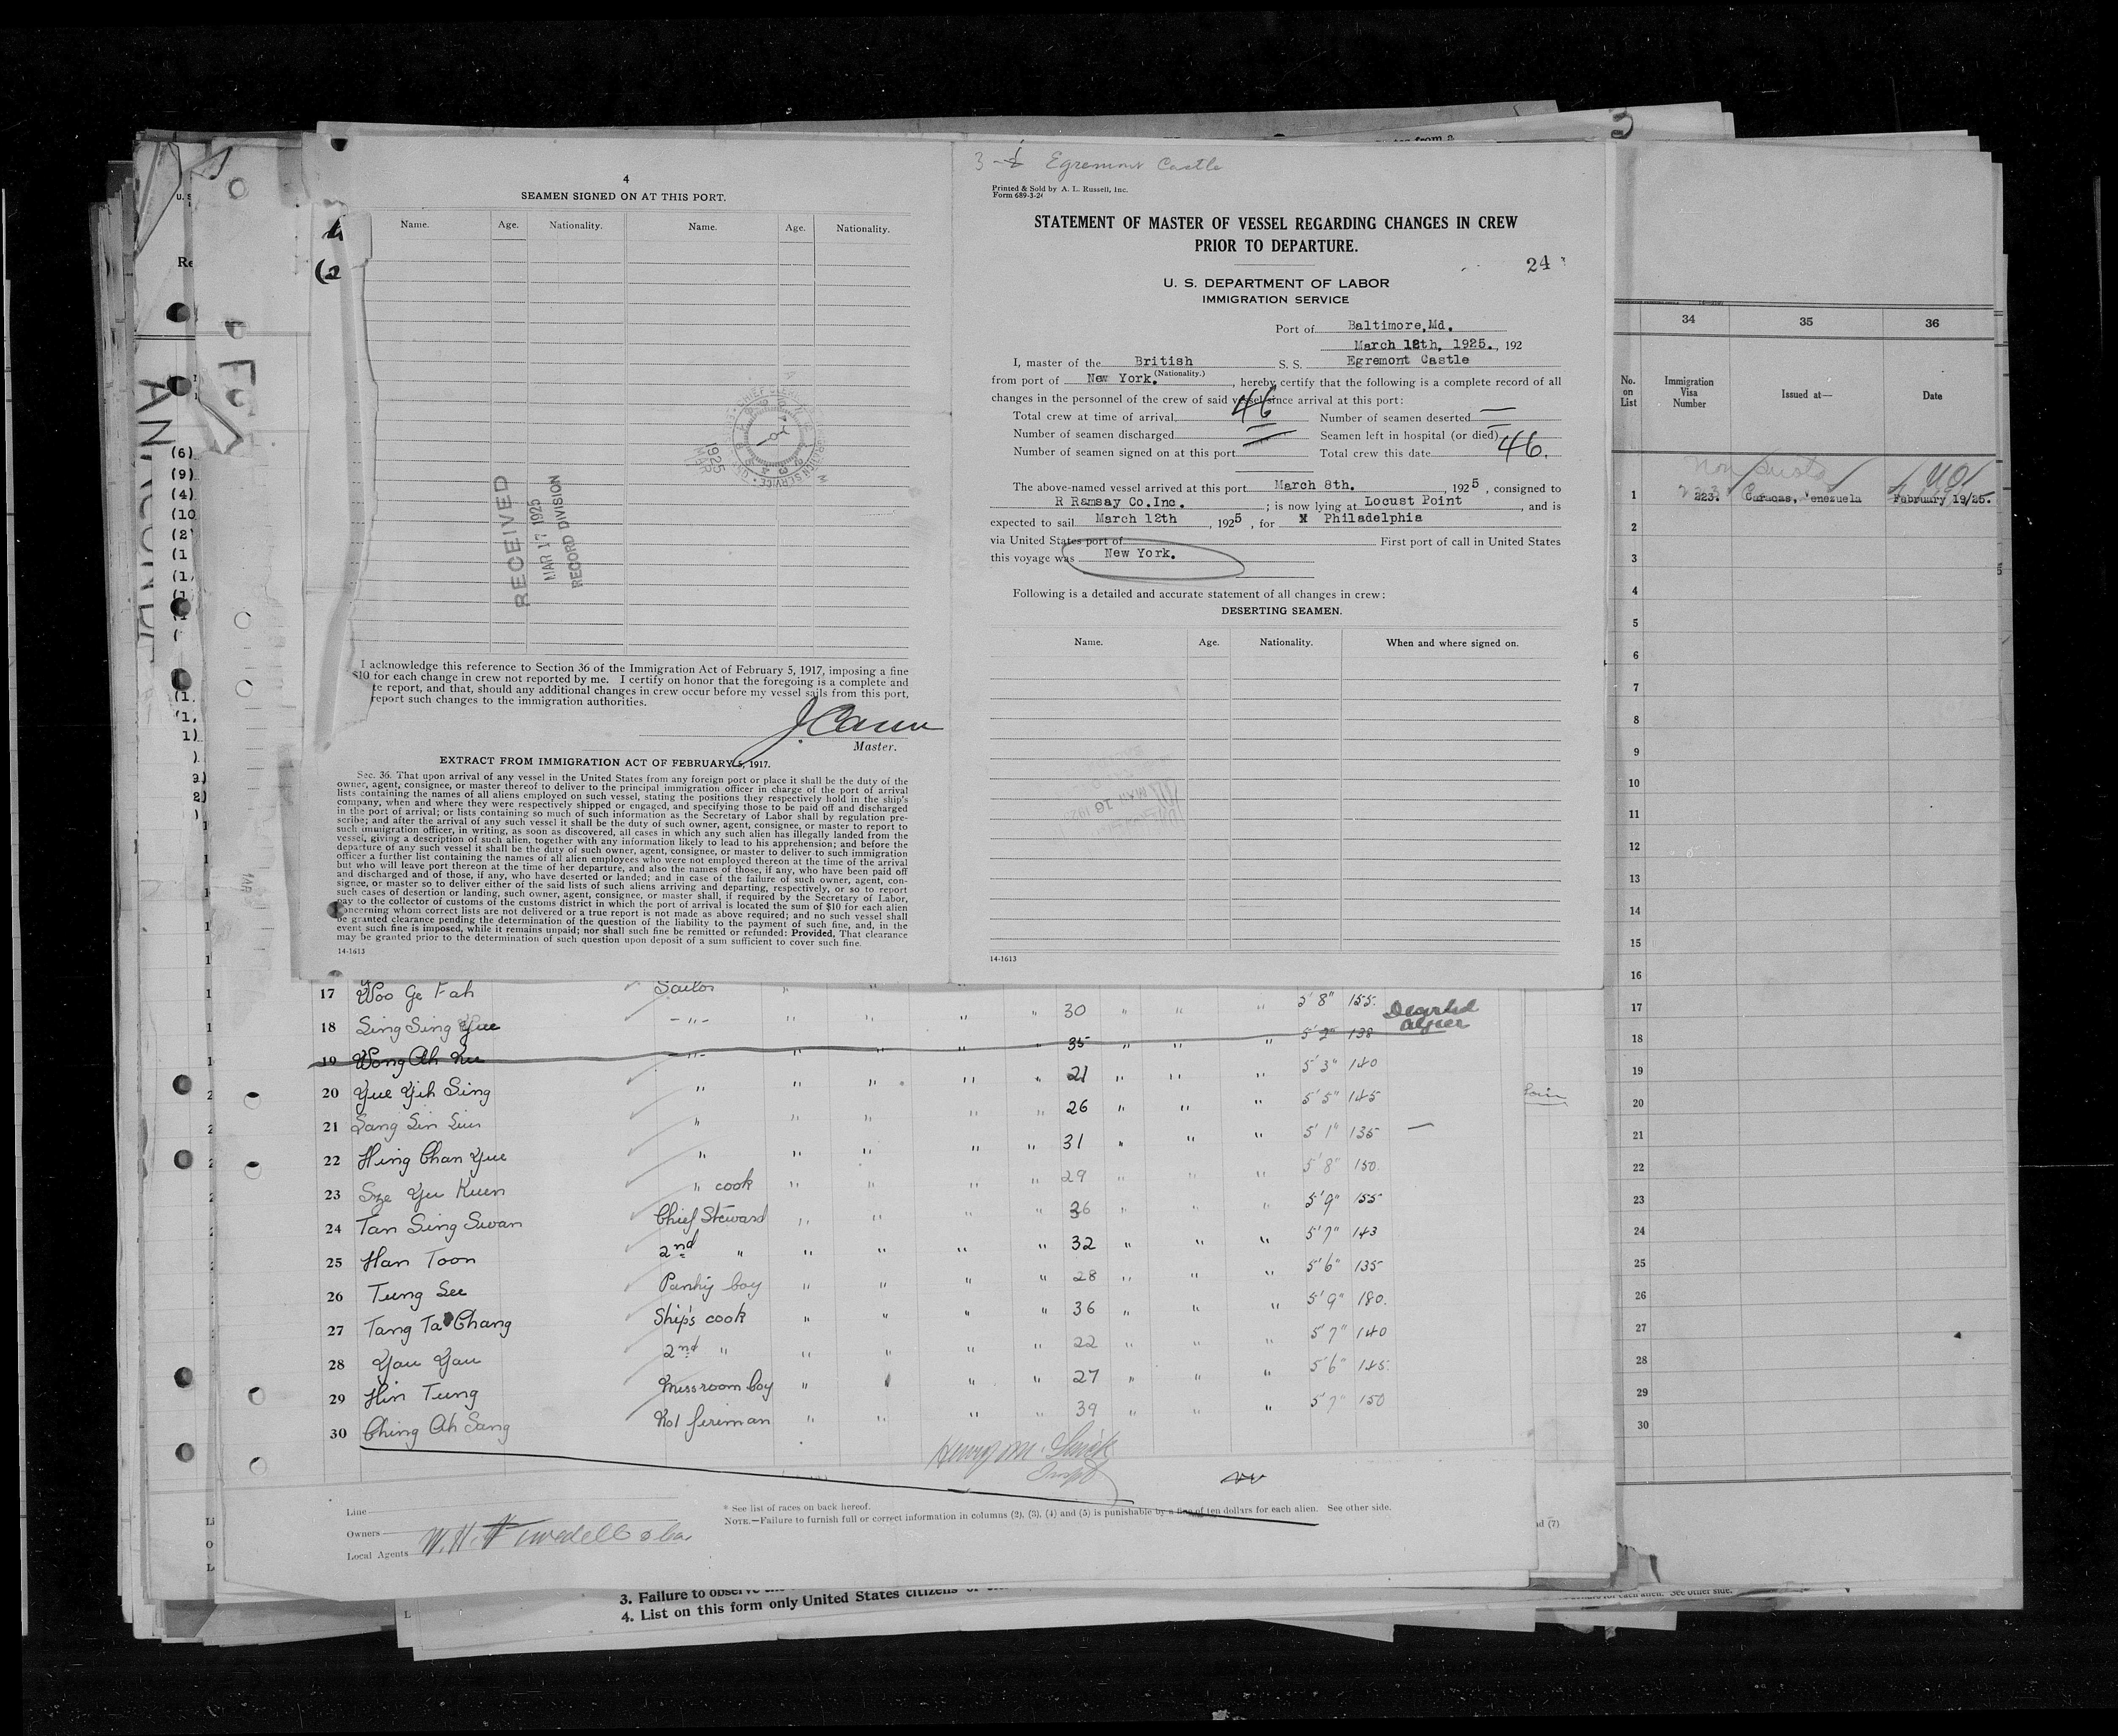 4
SEAMEN SIGNED ON AT THIS PORT.
Name. Age. Nationality. Name. Age. Nationality.
RECEIVED
MAR 17 1925
RECORD DIVISION
I acknowledge this reference to Section 36 of the Immigration Act of February 5, 1917, imposing a fine
$10 for each change in crew not reported by me. I certify on honor that the foregoing is a complete and
te report, and that, should any additional changes in crew occur before my vessel sails from this port,
report such changes to the immigration authorities.
Master.
EXTRACT FROM IMMIGRATION ACT OF FEBRUARY 5, 1917.
Sec. 36. That upon arrival of any vessel in the United States from any foreign port or place it shall be the duty of the
owner, agent, consignee, or master thereof to deliver to the principal immigration officer in charge of the port of arrival
lists containing the names of all aliens employed on such vessel, stating the positions they respectively hold in the ship's
company, when and where they were respectively shipped or engaged, and specifying those to be paid off and discharged
in the port of arrival; or lists containing so much of such information as the Secretary of Labor shall by regulation pre-
scribe; and after the arrival of any such vessel it shall be the duty of such owner, agent, consignee, or master to report to
such immigration officer, in writing, as soon as discovered, all cases in which any such alien has illegally landed from the
vessel, giving a description of such alien, together with any information likely to lead to his apprehension; and before the
departure of any such vessel it shall be the duty of such owner, agent, consignee, or master to deliver to such immigration
officer a further list containing the names of all alien employees who were not employed thereon at the time of the arrival
but who will leave port thereon at the time of her departure, and also the names of those, if any, who have been paid off
and discharged and of those, if any, who have deserted or landed; and in case of the failure of such owner, agent, con-
signee, or master so to deliver either of the said lists of such aliens arriving and departing, respectively, or so to report
such cases of desertion or landing, such owner, agent, consignee, or master shall, if required by the Secretary of Labor,
pay to the collector of customs of the customs district in which the port of arrival is located the sum of $10 for each alien
concerning whom correct lists are not delivered or a true report is not made as above required; and no such vessel shall
be granted clearance pending the determination of the question of the liability to the payment of such fine, and, in the
event such fine is imposed, while it remains unpaid; nor shall such fine be remitted or refunded: Provided, That clearance
may be granted prior to the determination of such question upon deposit of a sum sufficient to cover such fine.
14-1613
Egremont Castle
Printed & Sold by A. L. Russell, Inc.
Form 689-3-24
STATEMENT OF MASTER OF VESSEL REGARDING CHANGES IN CREW
PRIOR TO DEPARTURE.
24
U. S. DEPARTMENT OF LABOR
IMMIGRATION SERVICE
Port of Baltimore, Md.
March 12th, 1925., 192
I, master of the British S. S. Egremont Castle
(Nationality.)
from port of New York. , hereby certify that the following is a complete record of all
changes in the personnel of the crew of said vessel since arrival at this port:
Total crew at time of arrival 46 Number of seamen deserted —
Number of seamen discharged — Seamen left in hospital (or died) —
Number of seamen signed on at this port — Total crew this date 46.
The above-named vessel arrived at this port March 8th. , 1925 , consigned to
R Ramsay Co.Inc. ; is now lying at Locust Point , and is
expected to sail March 12th , 1925 , for Philadelphia
via United States port of First port of call in United States
this voyage was New York.
Following is a detailed and accurate statement of all changes in crew:
DESERTING SEAMEN.
Name. Age. Nationality. When and where signed on.
14-1613
34 35 36
No. on List Immigration Visa Number Issued at— Date
1 223. Caracas, Venezuela February 19/25.
2
3
4
5
6
7
8
9
10
11
12
13
14
15
16
17
18
19
20
21
22
23
24
25
26
27
28
29
30
17 Woo Ge Fah Sailor 30 5'8" 155.
18 Sing Sing Yue -"- 35 5'2" 138
19 Wong Ah -"- 21 5'3" 140
20 Yue Yih Sing " 26 5'5" 145
21 Sang Sin " 31 5'1" 135
22 Hing Chan Yue " 29 5'8" 150.
23 Sze Yu Kuen " cook 36 5'9" 155
24 Tan Sing Swan Chief Steward 32 5'7" 143
25 Han Toon 2nd " 28 5'6" 135
26 Tung See Pantry boy 36 5'9" 180.
27 Tang Ta Chang Ship's cook 22 5'7" 140
28 Yau Yau 2nd " 27 5'6" 145.
29 Hin Tung Messroom boy 39 5'7" 150
30 Ching Ah Sang No1 fireman
Line
Owners
Local Agents
* See list of races on back hereof.
NOTE.—Failure to furnish full or correct information in columns (2), (3), (4) and (5) is punishable by a fine of ten dollars for each alien. See other side.
3. Failure to observe
4. List on this form only United States citizens